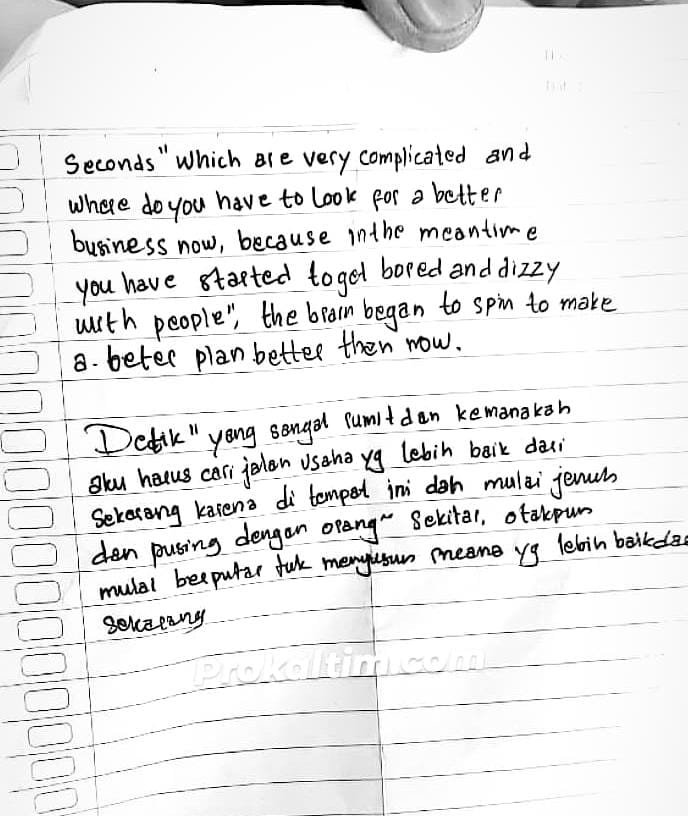 Seconds" which are very complicated and
where do you have to look for a better
business now, because inthe meantime
you have started to get bored and dizzy
with people", the brain began to spin to make
a. beter plan better then now.
Detik" yang sangat rumit dan kemanakah
aku harus cari jalan usaha yg lebih baik dari
Sekarang karena di tempat ini dah mulai jenuh
dan pusing dengan orang~ Sekitar, otakpun
mulai berputar tuk menyusun yg lebih baik dar
Sekarang
Prokaltim.com